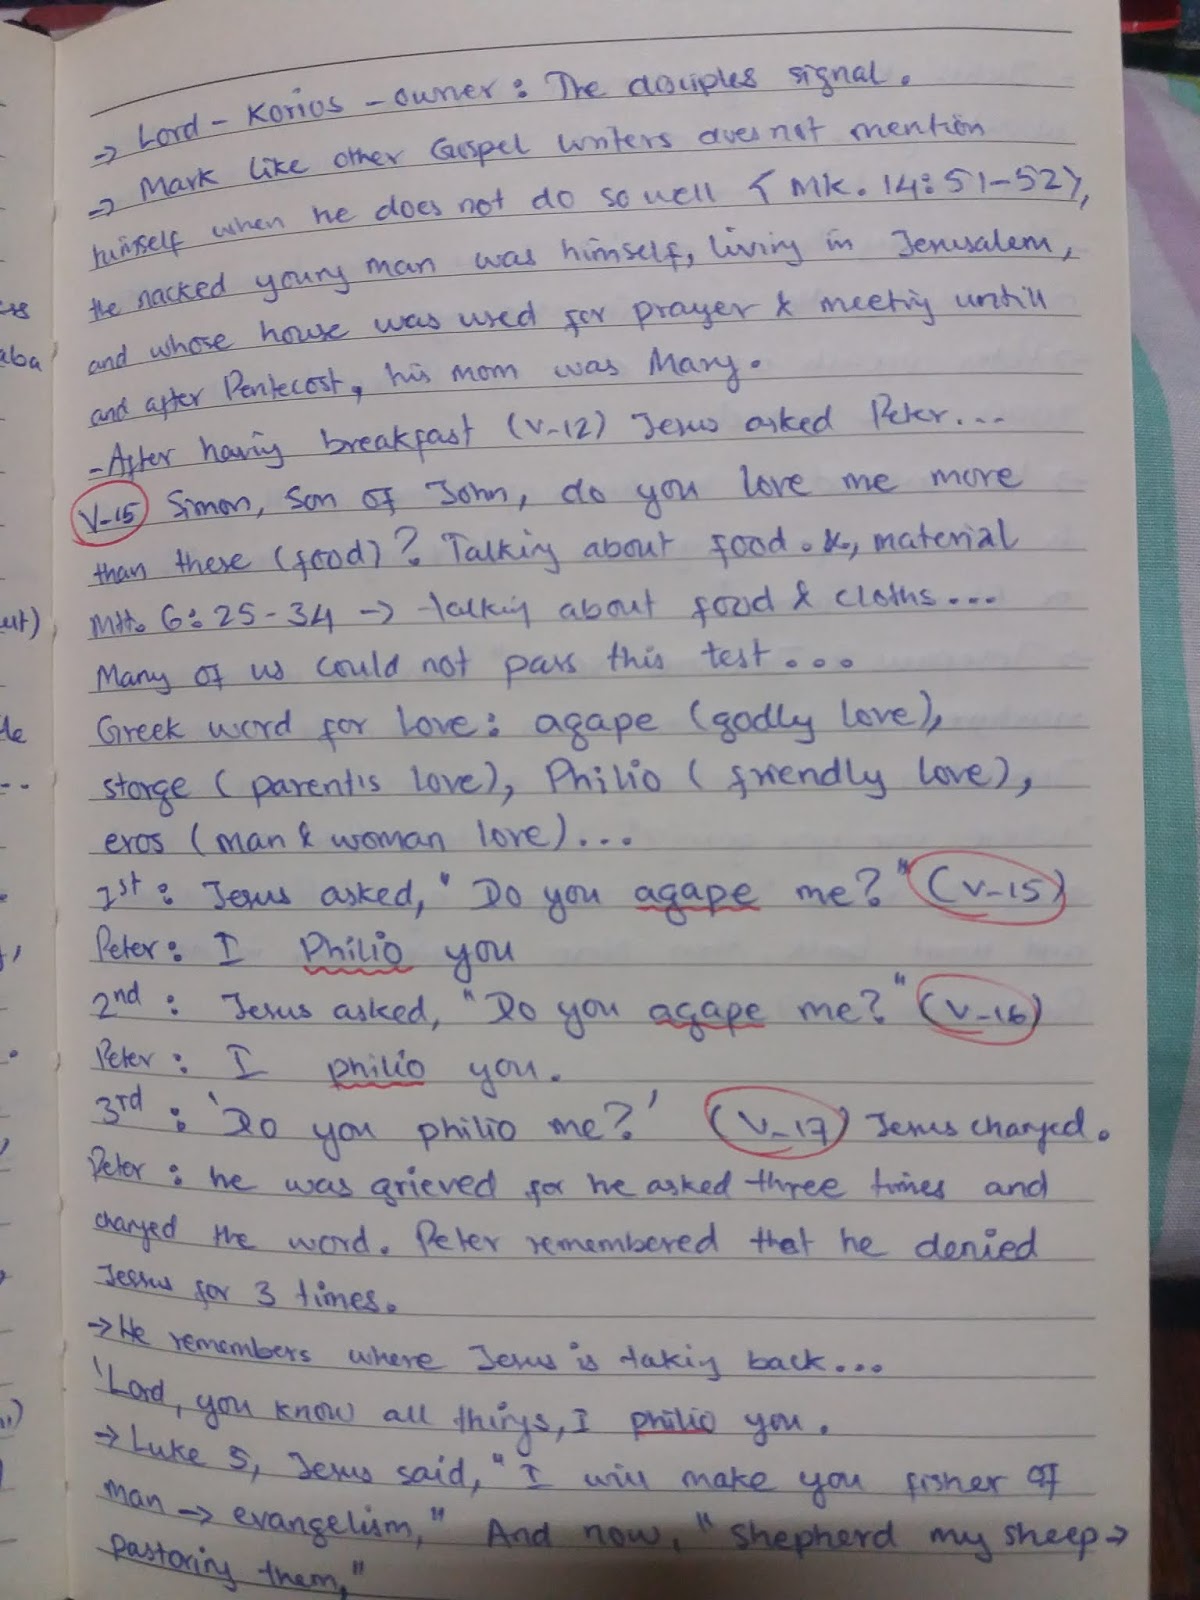 → Lord - Korios - owner: The disciples signal.
→ Mark like other Gospel writers does not mention
himself when he does not do so well {Mk. 14:51-52},
the nacked young man was himself, living in Jerusalem,
and whose house was used for prayer & meeting untill
and after Pentecost, his mom was Mary.
- After having breakfast (V-12) Jesus asked Peter...
V-15 Simon, son of John, do you love me more
than these (food)? Talking about food. &, material
Mtt. 6:25-34 → talking about food & cloths...
Many of us could not pass this test...
Greek word for love: agape (godly love),
storge (parentis love), Philio (friendly love),
eros (man & woman love)...
1st: Jesus asked, "Do you agape me?" (V-15)
Peter: I Philio you
2nd: Jesus asked, "Do you agape me?" (V-16)
Peter: I philio you.
3rd: 'Do you philio me?' (V-17) Jesus changed.
Peter: he was grieved for he asked three times and
changed the word. Peter remembered that he denied
Jesus for 3 times.
→ He remembers where Jesus is taking back...
'Lord, you know all things, I philio you.
→ Luke 5, Jesus said, "I will make you fisher of
man → evangelism," And now, "shepherd my sheep →
Pastoring them,"